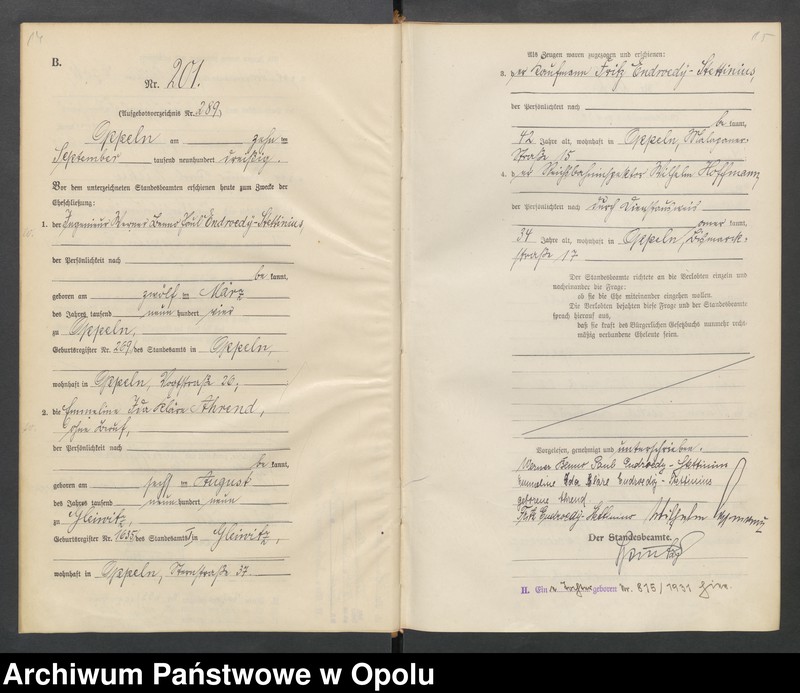 B.
Nr. 201.
(Aufgebotsverzeichnis Nr. 289)
Oppeln am zehn ten
September tausend neunhundert dreißig.
Vor dem unterzeichneten Standesbeamten erschienen heute zum Zwecke der
Eheschließung:
1. der Ingenieur Werner Benno Paul Endroedy-Stettinius,
der Persönlichkeit nach
be kannt,
geboren am zwölf ten März
des Jahres tausend neun hundert vier
zu Oppeln,
Geburtsregister Nr. 269 des Standesamts in Oppeln,
wohnhaft in Oppeln, straße 26,
2. die Emmeline Ida Klara Ahrend,
ohne Beruf,
der Persönlichkeit nach
be kannt,
geboren am sechs ten August
des Jahres tausend neun hundert neun
zu Gleiwitz,
Geburtsregister Nr. 1635 des Standesamts I in Gleiwitz,
wohnhaft in Oppeln, Sternstraße 37.
Als Zeugen waren zugezogen und erschienen:
3. der Kaufmann Fritz Endroedy-Stettinius,
der Persönlichkeit nach
be kannt,
42 Jahre alt, wohnhaft in Oppeln, Malapaner-
straße 15
4. der Reichsbahninspektor Wilhelm Hoffmann,
der Persönlichkeit nach durch Dienstausweis
kannt,
34 Jahre alt, wohnhaft in Oppeln, Bismarck-
straße 17
Der Standesbeamte richtete an die Verlobten einzeln und
nacheinander die Frage:
ob sie die Ehe miteinander eingehen wollen.
Die Verlobten bejahten diese Frage und der Standesbeamte
sprach hierauf aus,
daß sie kraft des Bürgerlichen Gesetzbuchs nunmehr recht-
mäßig verbundene Eheleute seien.
Vorgelesen, genehmigt und unterschrieben.
Werner Benno Paul Endroedy-Stettinius
Emmeline Ida Klara Endroedy-Stettinius
geborene Ahrend
Fritz Endroedy-Stettinius Wilhelm Hoffmann
Der Standesbeamte.
II. Eine Tochter geboren Nr. 815/1931 hier.
Archiwum Państwowe w Opolu